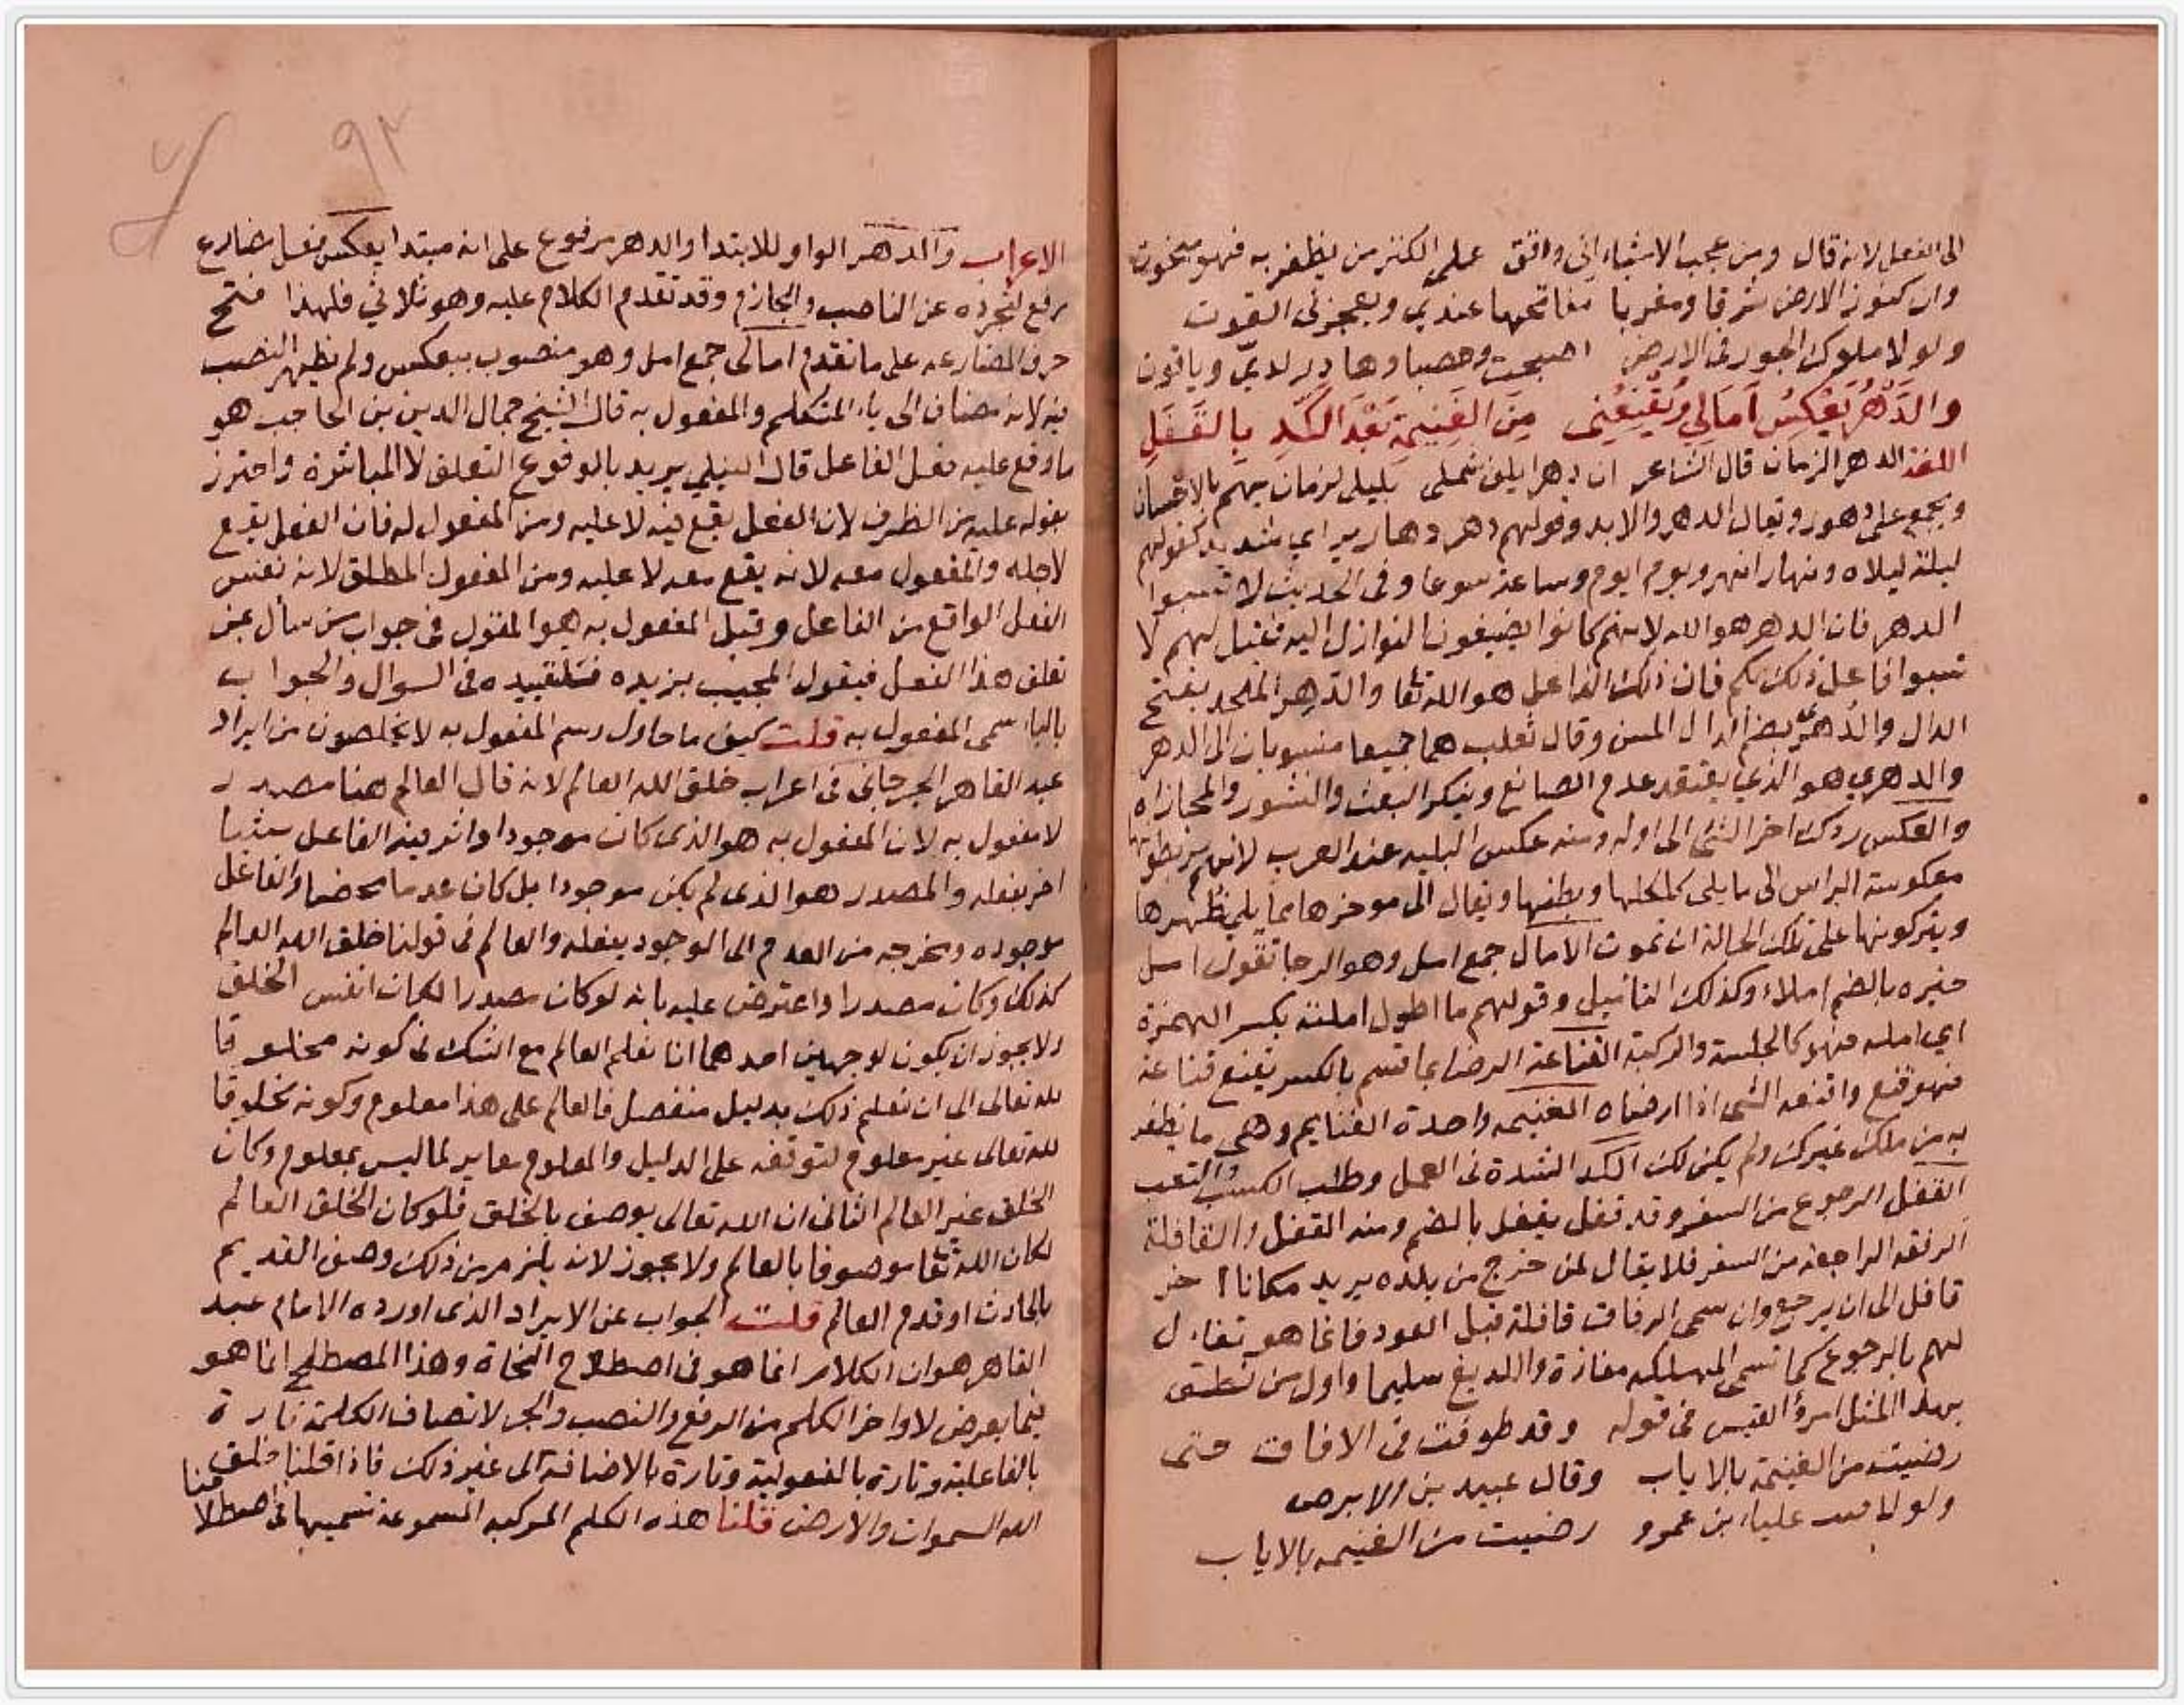 الى الفعل لانه قال ومن عجب الاشياء اني واقف على الكنز من يظفر به فهو مبخوت
وان كنوز الارض شرقا ومغربا مفاتحها عندي ويعجزني القوت
ولولا ملوك الجور في الارض اصبحت وحصباوها در لدي وياقوت
والدَّهْرُ يَعْكِسُ آمَالِي وَيُقْنِعُنِي مِنَ الغَنِيمَةِ بَعْدَ الكَدِّ بِالقَفَلِ
اللغة الدهر الزمان قال الشاعر ان دهرا يلف شملى بليلى لزمان يهم بالاحسان
ويجمع على دهور ويقال الدهر والابد وقولهم دهر دهارير اي شديد كقولهم
ليلة ليلاه ونهار انهر ويوم ايوم وساعة سوعا وفى الحديث لا تسبوا
الدهر فان الدهر هو الله لانهم كانوا يضيفون النوازل اليه فقيل لهم لا
تسبوا فاعل ذلك بكم فان ذلك الفاعل هو الله تعا والدهري الملحد بفتح
الدال والدُهرى بضم الدال المسن وقال ثعلب هما جميعا منسوبان الى الدهر
والدهري هو الذي يعتقد عدم الصانع وينكر البعث والنشور والمجازاه
والعكس ردك اخر الشئ الى اوله ومنه عكس البليه عند العرب لانهم يربطونها
معكوسة الراس الى ما يلى كلكلها وبطنها ويقال الى موخرها مما يلي ظهرها
ويتركونها على تلك الحالة ان تموت الآمال جمع امل وهو الرجا تقول امل
خيره بالضم املاء وكذلك التاميل وقولهم ما اطول املته بكسر الهمزة
اي امله فهو كالجلسة والركبة القناعة الرضا بما قسم بالكسر يقنع قناعة
فهو قنع واقنعه الشى اذا ارضاه الغنيمه واحدة الغنايم وهي ما يظفر
به من ملك غيرك ولم يكن لك الكد الشدة فى العمل وطلب الكسب والتعب
القفل الرجوع من السفر وقد قفل يقفل بالضم ومنه القفل والقافلة
الرفقه الراجعة من السفر فلا يقال لمن خرج من بلده يريد مكانا اخر
قافل الى ان يرجع وان سمى الرفاق قافلة قبل العود فانما هو تفاءل
لهم بالرجوع كما تسمى المهلكه مفازة واللديغ سليما واول من نطق
بهذا المثل امرؤ القيس فى قوله وقد طوفت فى الافاق حتى
رضيت من الغنيمة بالاياب وقال عبيد بن الابرص
ولو لاقيت علياء بن عمرو رضيت من الغنيمه بالاياب
٩٢
الاعراب والدهر الواو للابتدا والدهر مرفوع على انه مبتدا يعكس فعل مضارع
رفع لتجرده عن الناصب والجازم وقد تقدم الكلام عليه وهو ثلاثي فلهذا فتح
حرف المضارعه على ما تقدم امالى جمع امل وهو منصوب بيعكس ولم يظهر النصب
فيه لانه مضاف الى ياء المتكلم والمفعول به قال الشيخ جمال الدين بن الحاجب هو
ما وقع عليه فعل الفاعل قال النيلي يريد بالوقوع التعلق لا المباشرة واحترز
بقوله عليه من الظرف لان الفعل يقع فيه لا عليه ومن المفعول له فان الفعل يقع
لاجله والمفعول معه لانه يقع معه لا عليه ومن المفعول المطلق لانه نفس
الفعل الواقع من الفاعل وقيل المفعول به هو المقول فى جواب من سأل بمن
تعلق هذا الفعل فيقول المجيب بزيده فتلقييده فى السوال والجواب
بالباء سمى المفعول به قلت كيف ما حاول رسم المفعول به لا يخلصون من ايراد
عبد القاهر الجرجانى فى اعراب خلق الله العالم لانه قال العالم هنا مصدر
لا مفعول به لان المفعول به هو الذى كان موجودا واثر فيه الفاعل شيئا
اخر بفعله والمصدر هو الذى لم يكن موجودا بل كان عدما محضا والفاعل
موجوده ومخرجه من العدم الى الوجود بفعله والعالم فى قولنا خلق الله العالم
كذلك وكان مصدرا واعترض عليه بانه لو كان مصدرا لكان نفس الخلق
ولا يجوز ان يكون لوجهين احدهما انا نعلم العالم مع الشك فى كونه مخلوقا
لله تعالى الى ان نعلم ذلك بدليل منفصل فالعالم على هذا معلوم وكونه مخلوقا
لله تعالى غير معلوم لتوقفه على الدليل والمعلوم مغاير لما ليس بمعلوم وكان
الخلق غير العالم الثانى ان الله تعالى يوصف بالخلق فلو كان الخلق العالم
لكان الله تعا موصوفا بالعالم ولا يجوز لانه يلزم من ذلك وصف القديم
بالحادث او قدم العالم قلت الجواب عن الايراد الذى اورده الامام عبد
القاهر هو ان الكلام انما هو فى اصطلاح النحاة وهذا المصطلح انما هو
فيما يعرض لاواخر الكلم من الرفع والنصب والجر لاتصاف الكلمة تارة
بالفاعلية وتارة بالمفعولية وتارة بالاضافة الى غير ذلك فاذا قلنا خلق
الله السموات والارض قلنا هذه الكلم المركبه المسموعة نسميها فى اصطلاحنا